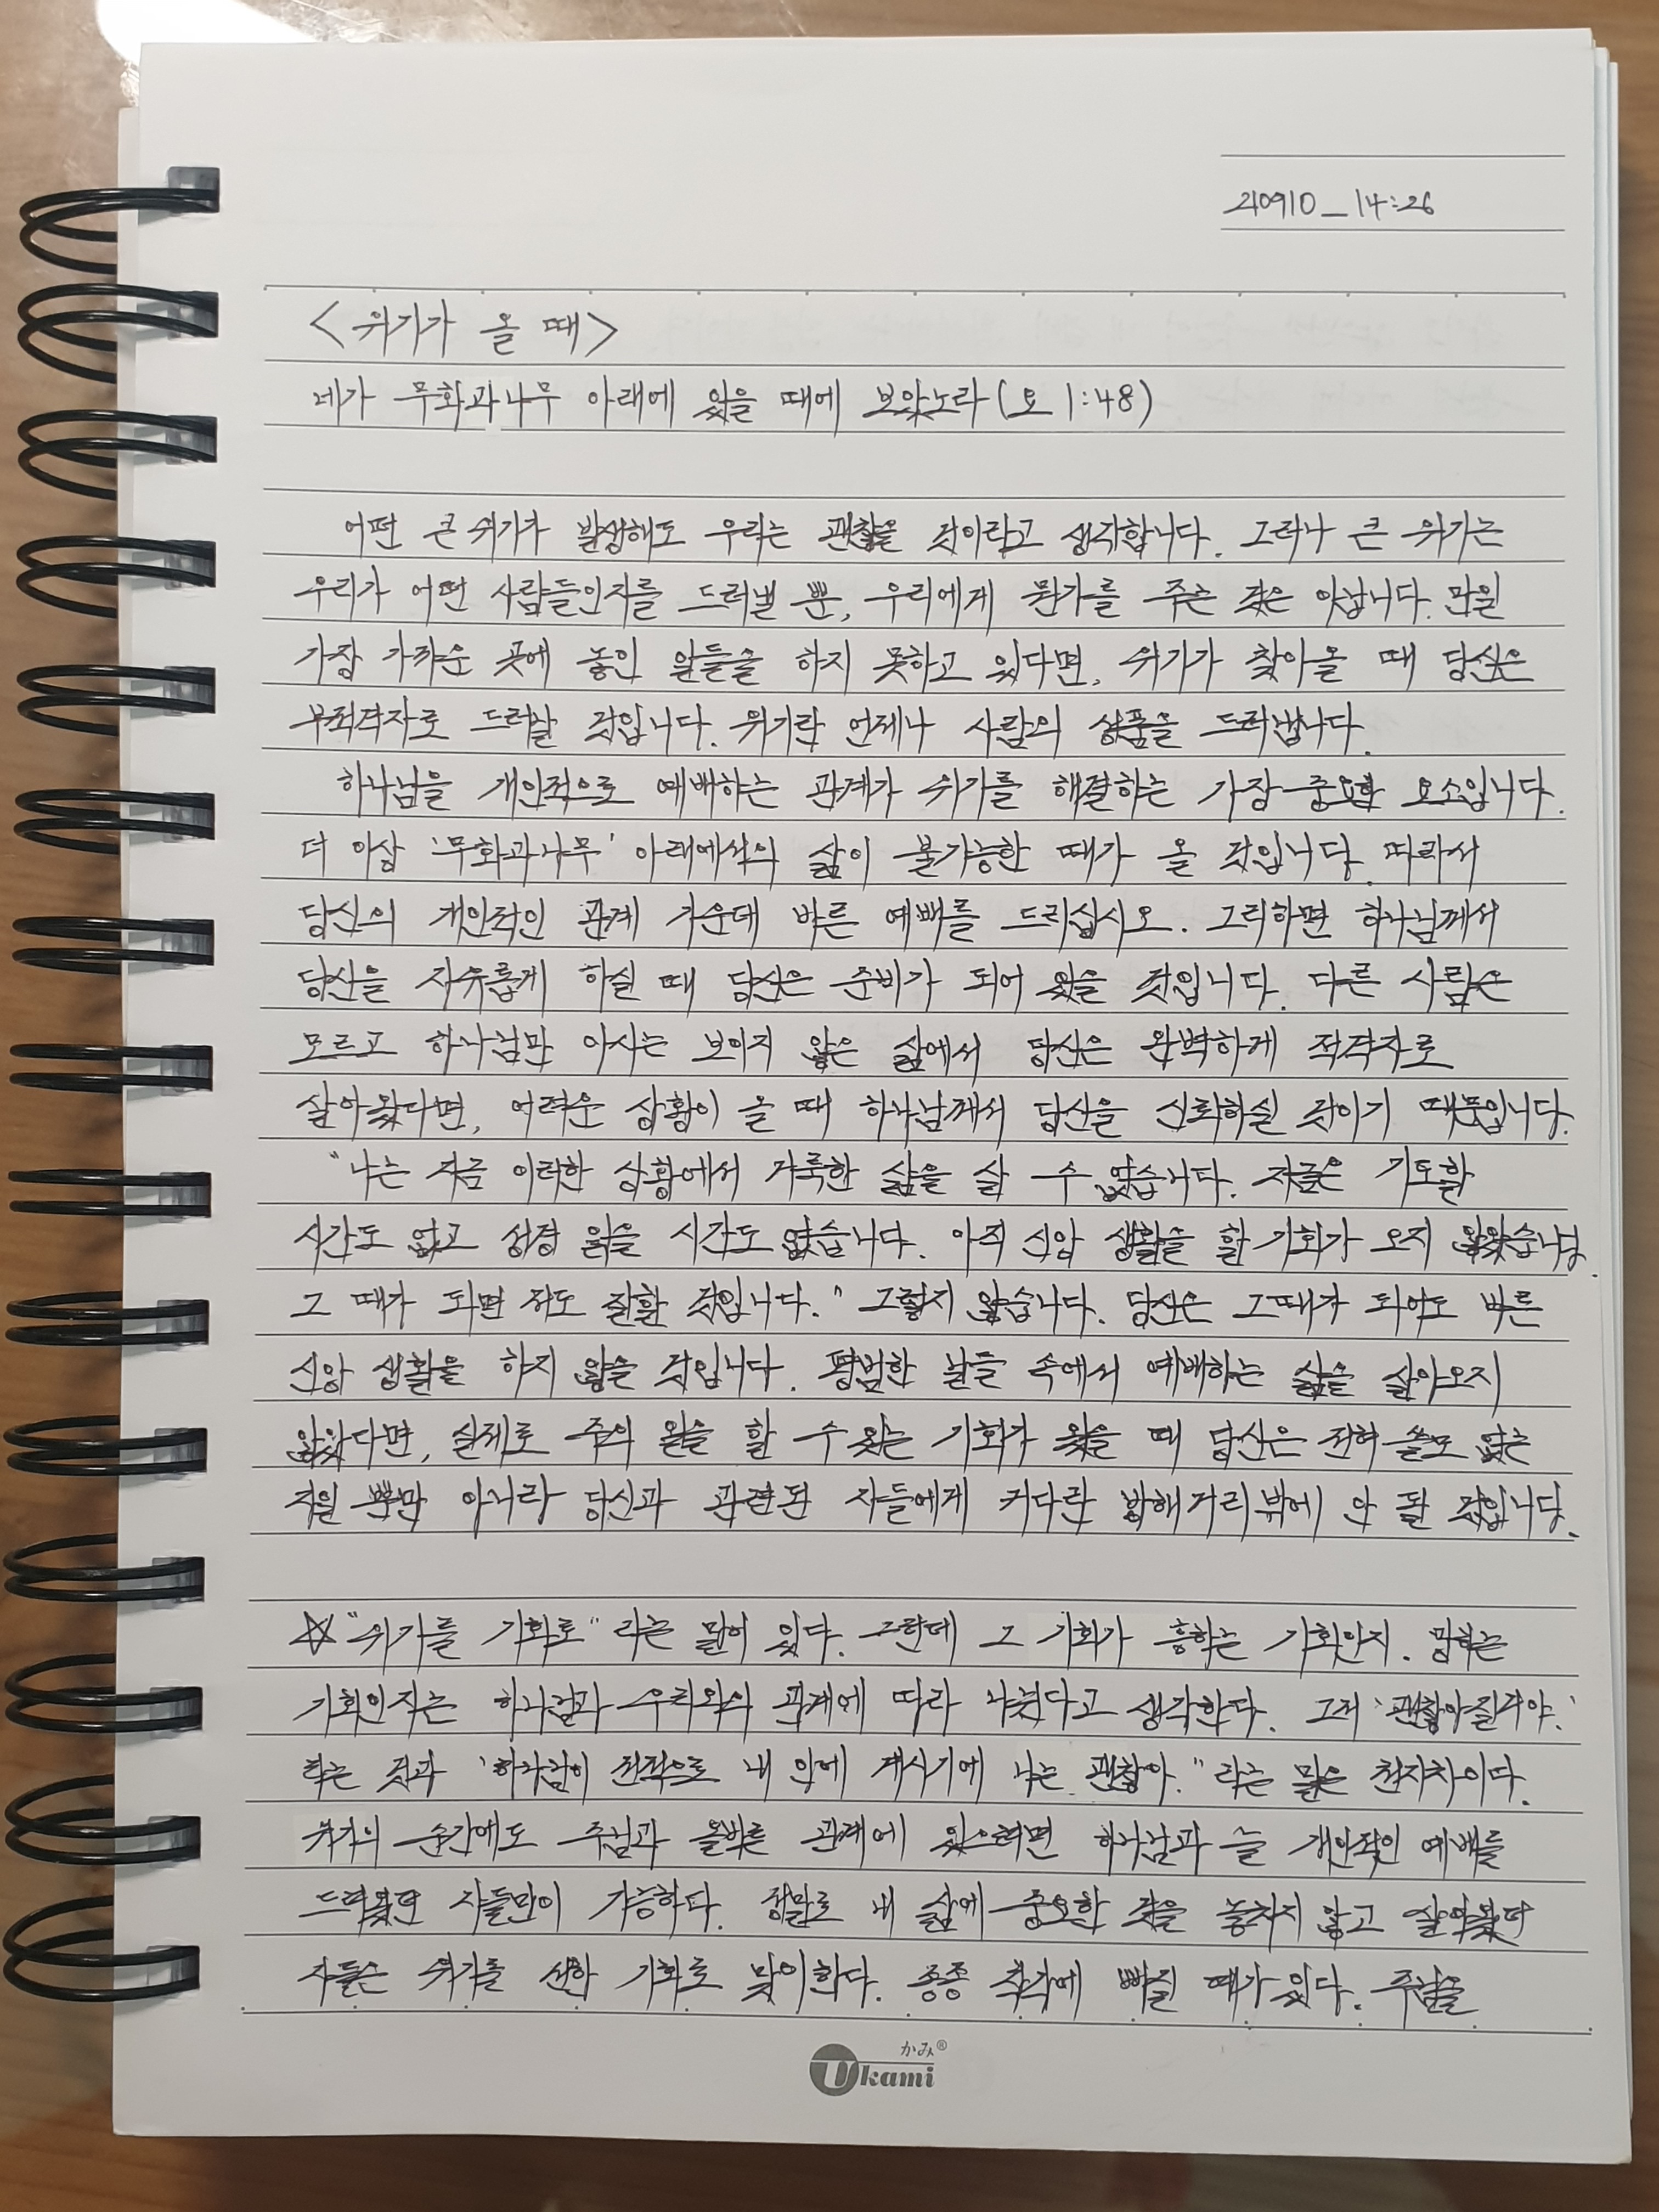 210910_14:26
<위기가 올 때>
네가 무화과나무 아래에 있을 때에 보았노라(요 1:48)
어떤 큰 위기가 발생해도 우리는 괜찮을 것이라고 생각합니다. 그러나 큰 위기는
우리가 어떤 사람들인지를 드러낼 뿐, 우리에게 뭔가를 주는 것은 아닙니다. 만일
가장 가까운 곳에 놓인 일들을 하지 못하고 있다면, 위기가 찾아올 때 당신은
부적격자로 드러날 것입니다. 위기란 언제나 사람의 성품을 드러냅니다.
하나님을 개인적으로 예배하는 관계가 위기를 해결하는 가장 중요한 요소입니다.
더 이상 '무화과나무' 아래에서의 삶이 불가능한 때가 올 것입니다. 따라서
당신의 개인적인 관계 가운데 바른 예배를 드리십시오. 그리하면 하나님께서
당신을 자유롭게 하실 때 당신은 준비가 되어 있을 것입니다. 다른 사람은
모르고 하나님만 아시는 보이지 않은 삶에서 당신은 완벽하게 적격자로
살아왔다면, 어려운 상황이 올 때 하나님께서 당신을 신뢰하실 것이기 때문입니다.
"나는 지금 이러한 상황에서 거룩한 삶을 살 수 없습니다. 지금은 기도할
시간도 없고 성경 읽을 시간도 없습니다. 아직 신앙 생활을 할 기회가 오지 않았습니다.
그 때가 되면 저도 잘할 것입니다." 그렇지 않습니다. 당신은 그때가 되어도 바른
신앙 생활을 하지 않을 것입니다. 평범한 날들 속에서 예배하는 삶을 살아오지
않았다면, 실제로 주의 일을 할 수 있는 기회가 왔을 때 당신은 전혀 쓸모 없는
자일 뿐만 아니라 당신과 관련된 자들에게 커다란 방해거리밖에 안 될 것입니다.
☆ "위기를 기회로" 라는 말이 있다. 그런데 그 기회가 흥하는 기회인지. 망하는
기회인지는 하나님과 우리와의 관계에 따라 나뉜다고 생각한다. 그저 '괜찮아질거야.'
라는 것과 '하나님이 전적으로 내 안에 계시기에 나는 괜찮아." 라는 말은 천지차이다.
위기의 순간에도 주님과 올바른 관계에 있으려면 하나님과 늘 개인적인 예배를
드려왔던 자들만이 가능하다. 정말로 내 삶에 중요한 것을 놓치지 않고 살아왔던
자들은 위기를 선한 기회로 맞이한다. 종종 착각에 빠질 때가 있다. 주님을
かみ®
Ukami